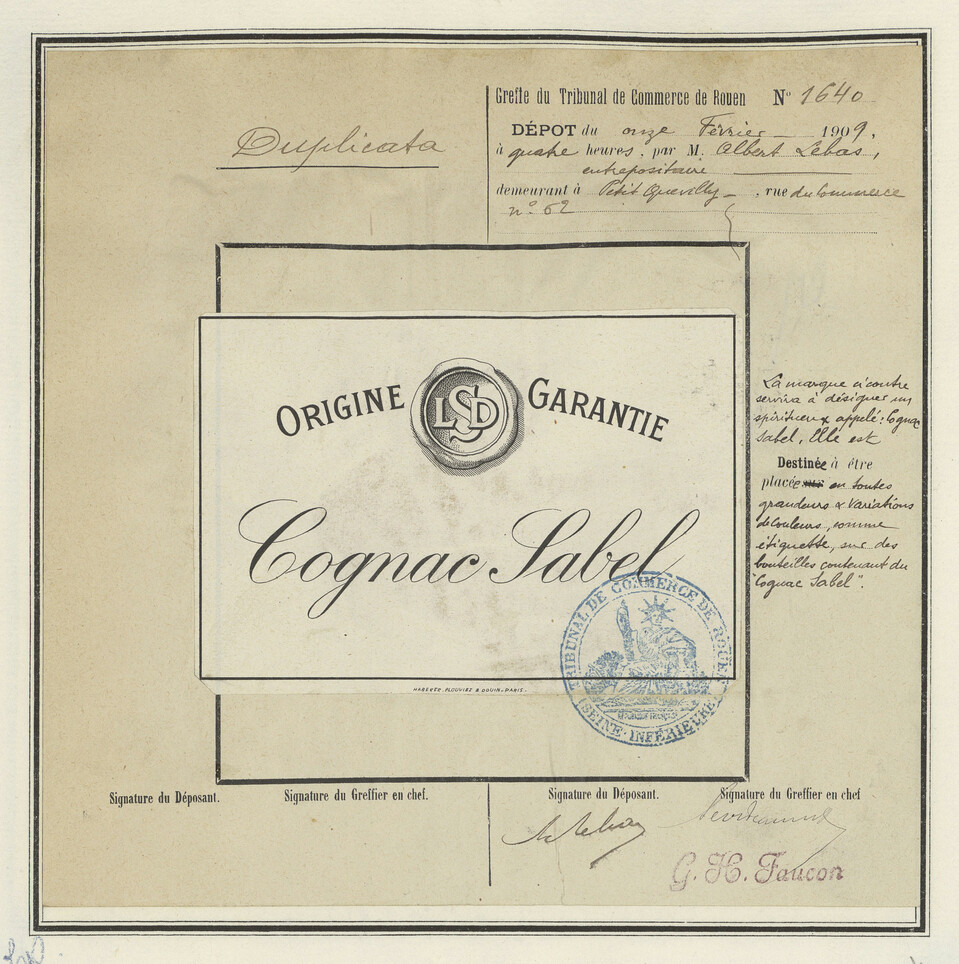 Duplicata
Greffe du Tribunal de Commerce de Rouen N° 1640
DÉPOT du onze Février 1909,
à quatre heures, par M. Albert Lebas,
entrepositaire
demeurant à Petit Quevilly, rue du Commerce
n° 62
ORIGINE LSD GARANTIE
Cognac Sabel
HABERT, PLOUVIEZ & DOUIN. PARIS.
La marque ci contre
servira à désigner un
spiritueux appelé: Cognac
Sabel, Elle est
Destinée à être
placée en toutes
grandeurs & variations
de couleurs, comme
étiquette, sur des
bouteilles contenant du
"Cognac Sabel".
TRIBUNAL DE COMMERCE DE ROUEN
RÉPUBLIQUE FRANÇAISE
(SEINE-INFÉRIEURE)
Signature du Déposant. Signature du Greffier en chef. Signature du Déposant. Signature du Greffier en chef
G. H. Faucon